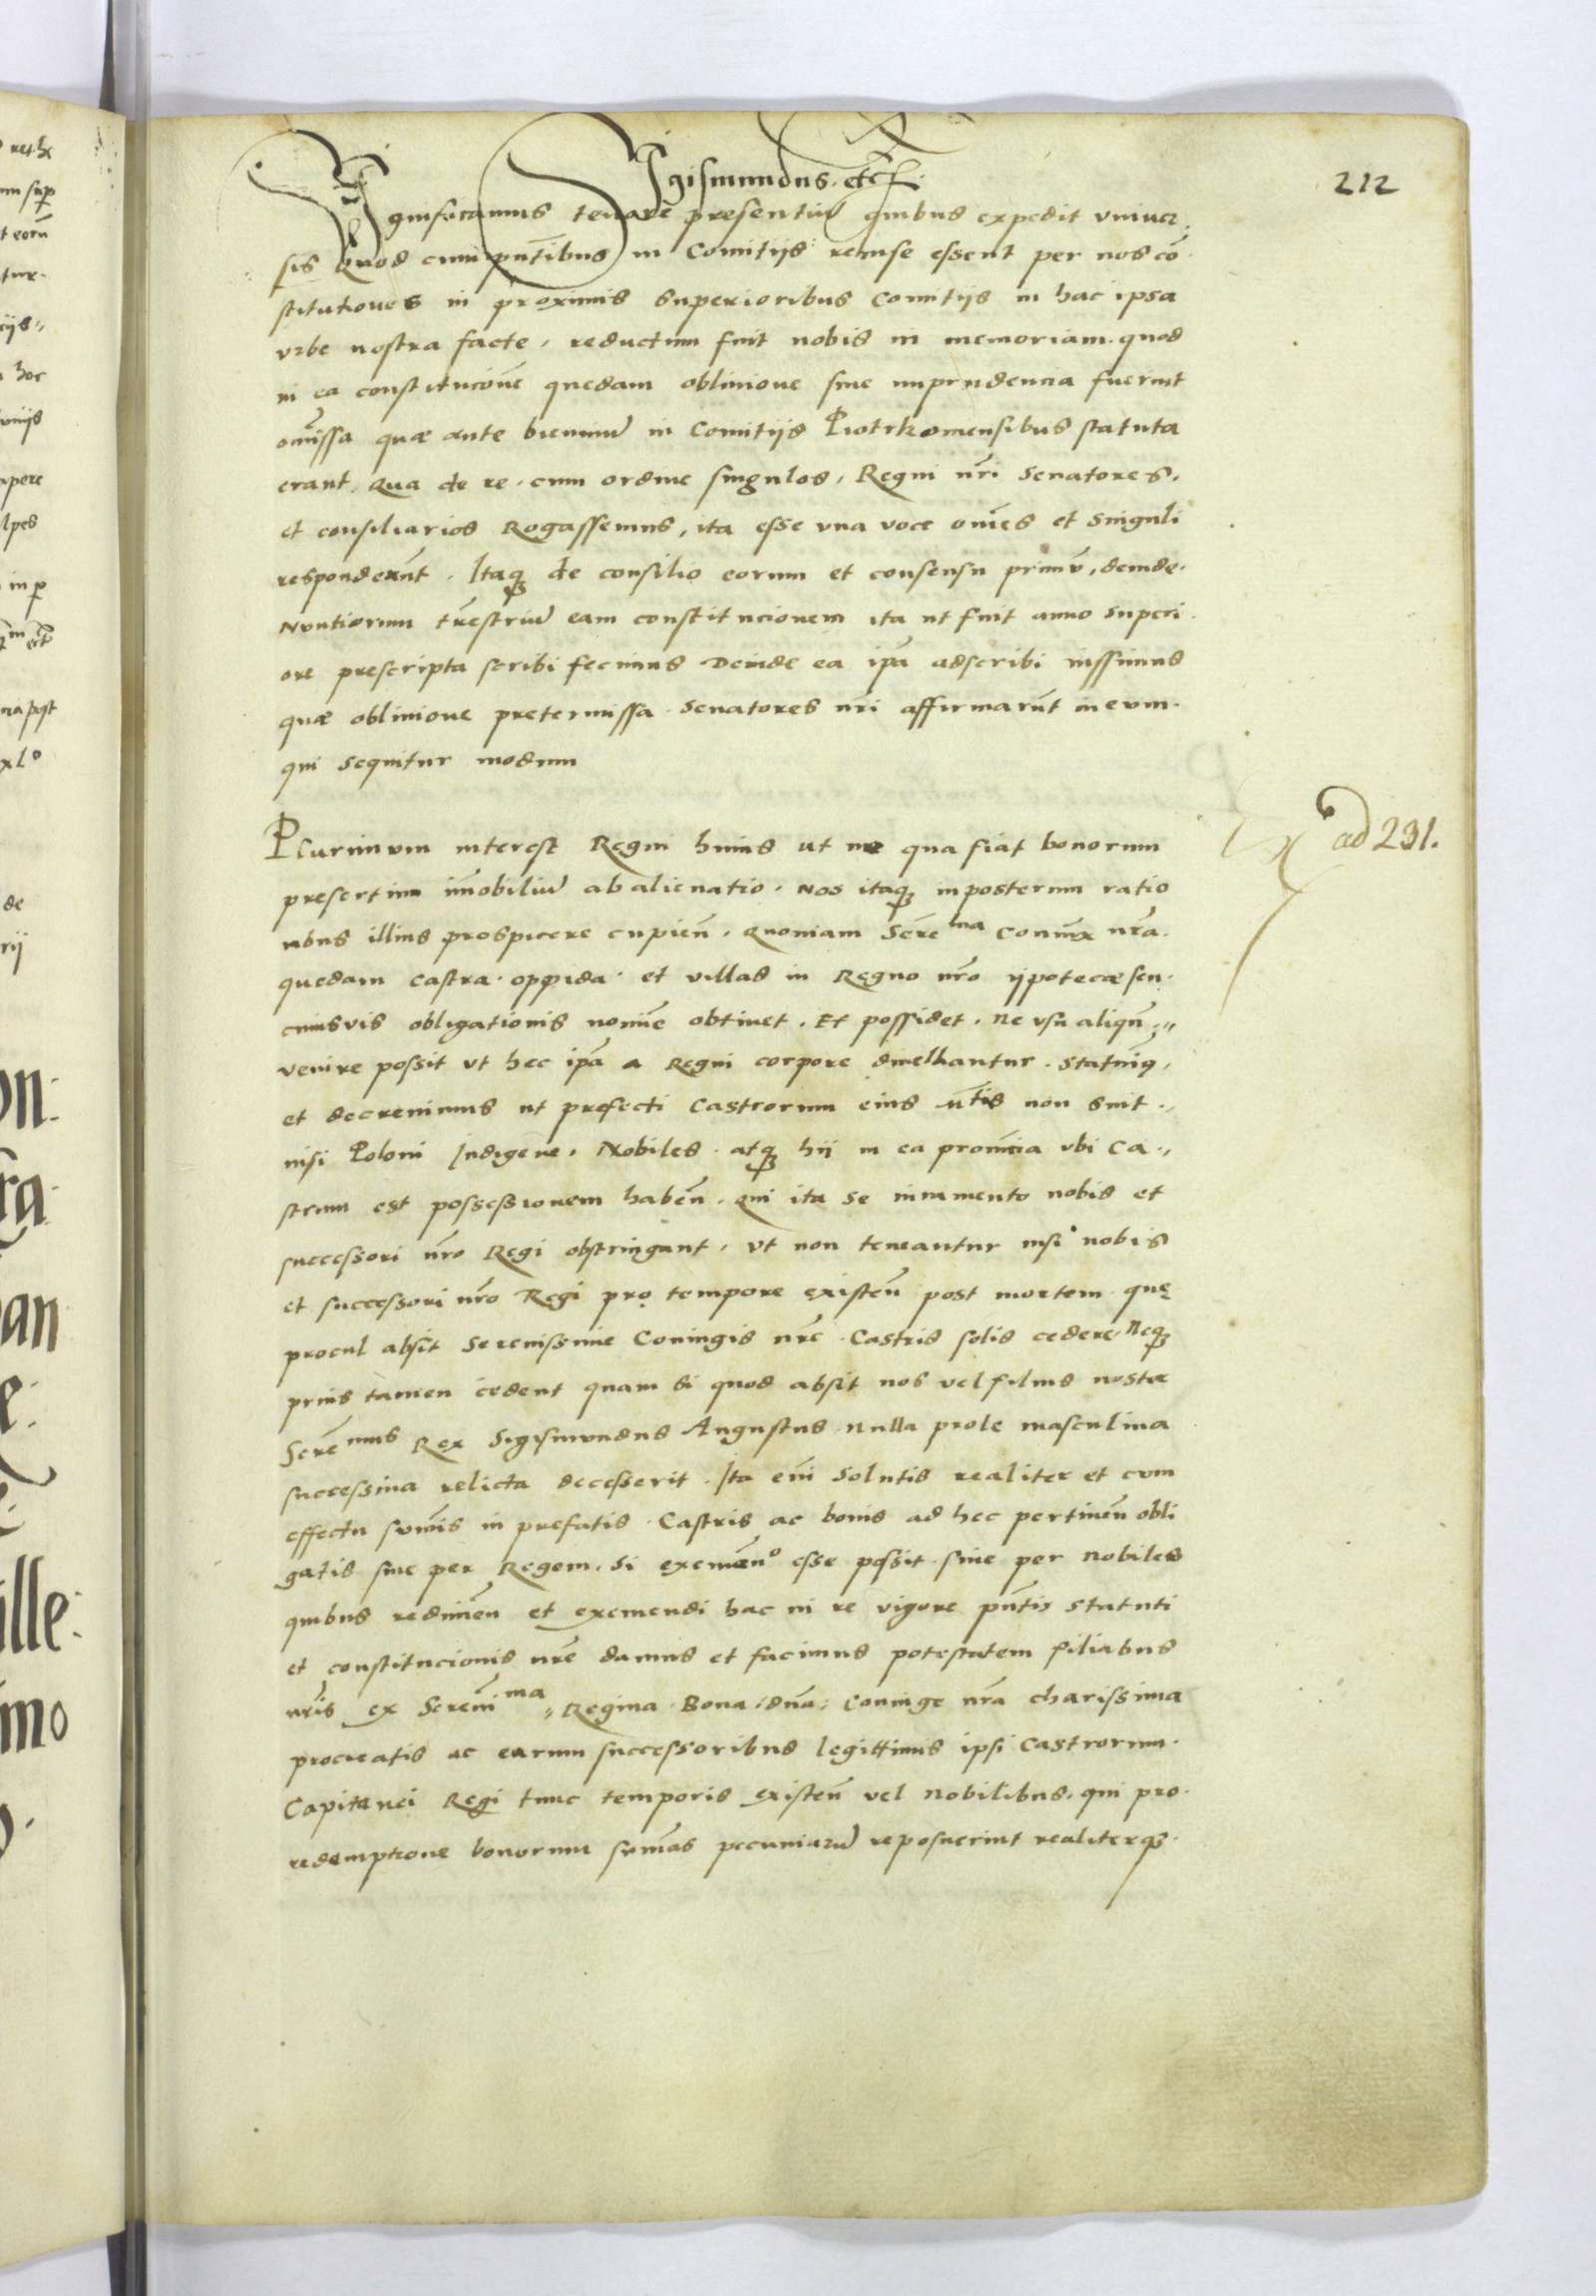 212
Sigismundus. etc.
Significamus tenore presentiu quibus expedit vniuer
sis Quod cum pntibus in Comitijs recense essent per nos co
stitutiones in proximis superioribus Comitijs in hac ipsa
vrbe nostra facte, reductum fuit nobis in memoriam. quod
in ea constitucione quedam obliuione siue imprudencia fuerint
omissa quæ ante bienniu in Comitijs Piotrkomensibus statuta
erant, Qua de re. cum ordine singulos, Regni nri Senatores,
et consiliarios Rogassemus, ita esse vna voce omes et singuli
responderunt. Itaq de consilio eorum et consensu primu, deinde.
Nuntiorum trestriu eam constitucionem ita ut fuit anno superi
ore prescripta scribi fecimus Deinde ea ipa adscribi iussimus
quæ obliuione pretermissa Senatores nri affirmarut in eum.
qui sequitur modum
Plurimum interest Regni huius ut ne qua fiat bonorum
presertim imobiliu abalienatio. Nos itaq inposterum ratio
nibus illius prospicere cupien. Quoniam Sere ma Coniux nra.
quedam Castra. oppida. et villas in Regno nro ypotecæ seu.
cuiusvis obligationis nomine obtinet. Et possidet. Ne vsu aliqn
venire possit vt hec ipa a Regni corpore diuellantur. Statuimq,
et decreuimus ut prefecti Castrorum eius mtis non sint
nisi Poloni Indigene. Nobiles. atq hij in ea prouincia vbi Ca
strum est possessionem haben. Qui ita se iuramento nobis et
successori nro Regi obstringant, vt non teneantur nisi nobis
et successori nro Regi pro tempore existen post mortem. quę
procul absit Serenissime Coniugis nre. Castris solis cedere, Neq
prius tamen cedent quam si quod absit nos vel filius noster
Sere mus Rex Sigismundus Augustus nulla prole masculina
successiua relicta decesserit. Ita eni solutis realiter et cum
effectu sumis in prefatis. Castris ac bonis ad hec pertinen obli
gatis siue per Regem. Si exemen° esse possit. siue per Nobiles
quibus redimen et exemendi hac in re vigore pntis Statuti
et constitucionis nre damus et facimus potestatem filiabus
nris ex Sereni ma Regina. Bona, dna, Coniuge nra charissima
procreatis ac earum successoribus legittimis ipsi Castrorum.
Capitanei Regi tunc temporis existen vel Nobilibus. qui pro.
redemptione bonorum sumas pecuniaru reposuerint realiterq.
ad 231.